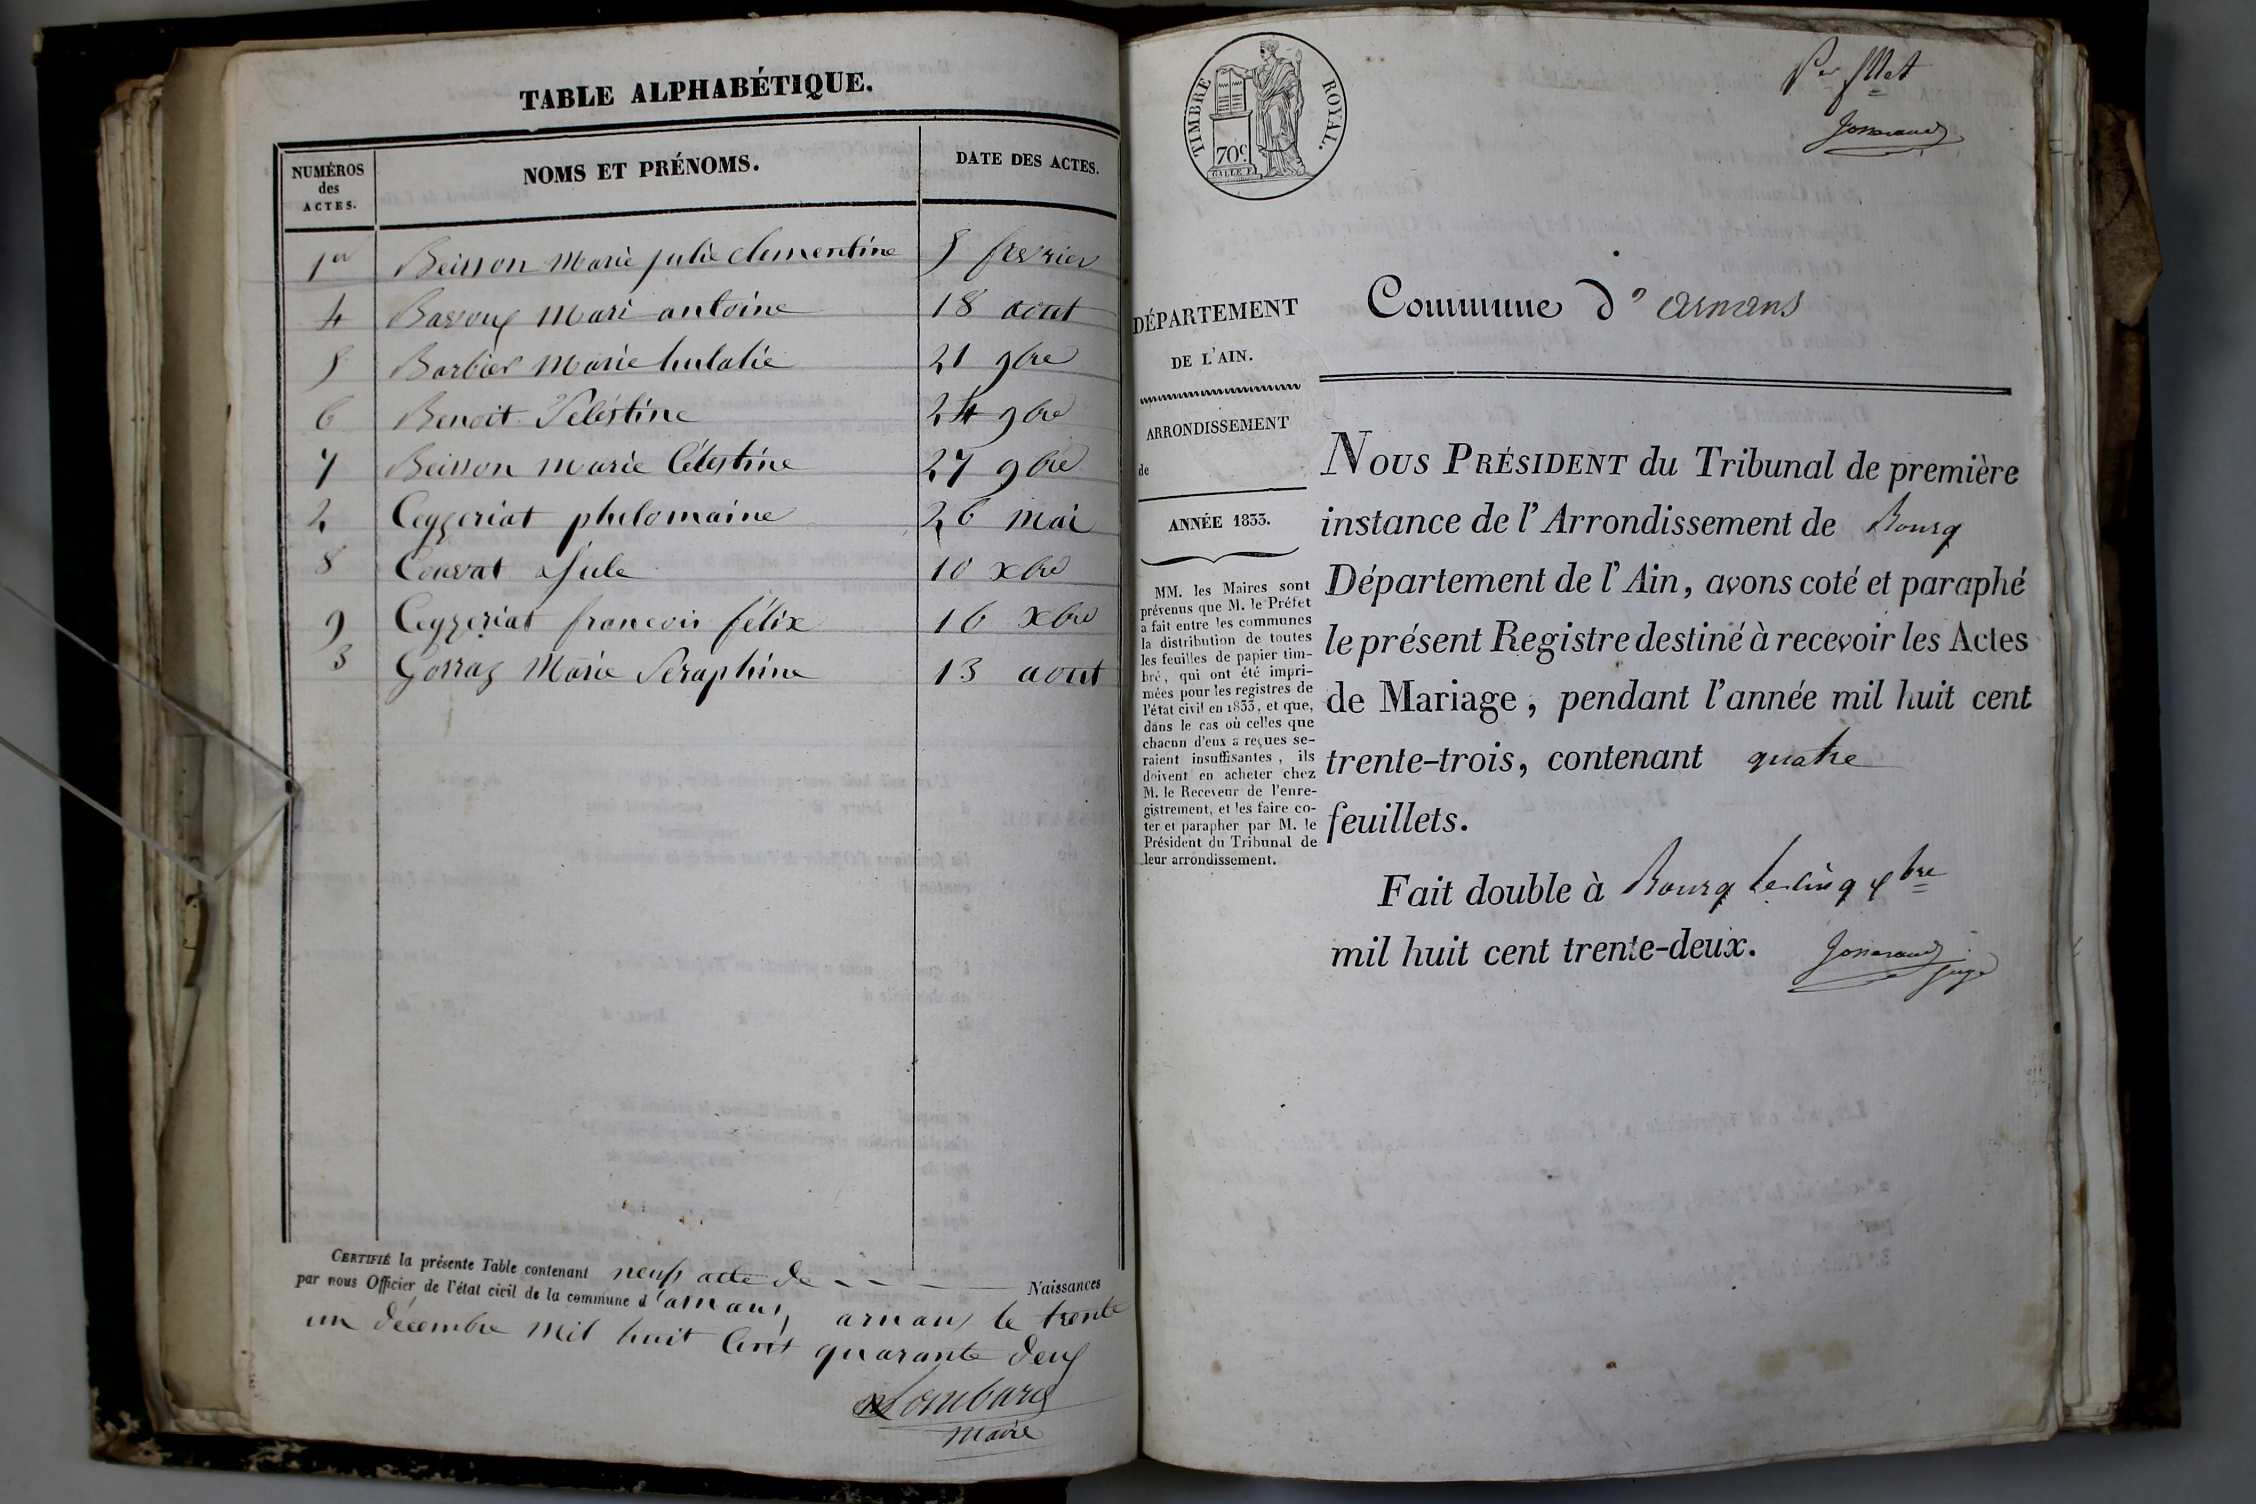 TABLE ALPHABÉTIQUE.
NUMÉROS
des
ACTES.
NOMS ET PRÉNOMS.
DATE DES ACTES.
1er Beisson Marie julie clementine 5 fevrier
4 Bavoux Mari antoine 18 aout
5 Barbier Marie hulalie 21 9bre
6 Benoit Selestine 24 9bre
7 Beisson Marie Célestine 27 9bre
2 Ceyzeriat philomaine 26 mai
8 Convat Jule 10 xbre
9 Ceyzeriat francois félix 16 xbre
3 Gorraz Marie Séraphine 13 aout
CERTIFIÉ la présente Table contenant neuf acte de Naissances
par nous Officier de l'état civil de la commune d'arnans, arnans le trente
un décembre mil huit Cent quarante deux
Lombard
Maire
TIMBRE ROYAL.
70c
Josserand
DÉPARTEMENT
DE L'AIN.
ARRONDISSEMENT
de
ANNÉE 1833.
MM. les Maires sont
prévenus que M. le Préfet
a fait entre les communes
la distribution de toutes
les feuilles de papier tim-
bré, qui ont été impri-
mées pour les registres de
l'état civil en 1833, et que,
dans le cas où celles que
chacun d'eux a reçues se-
raient insuffisantes, ils
doivent en acheter chez
M. le Receveur de l'enre-
gistrement, et les faire co-
ter et parapher par M. le
Président du Tribunal de
leur arrondissement.
Commune d'arnans
NOUS PRÉSIDENT du Tribunal de première
instance de l'Arrondissement de Bourg
Département de l'Ain, avons coté et paraphé
le présent Registre destiné à recevoir les Actes
de Mariage, pendant l'année mil huit cent
trente-trois, contenant quatre
feuillets.
Fait double à Bourg le cinq xbre
mil huit cent trente-deux.
Josserand
juge